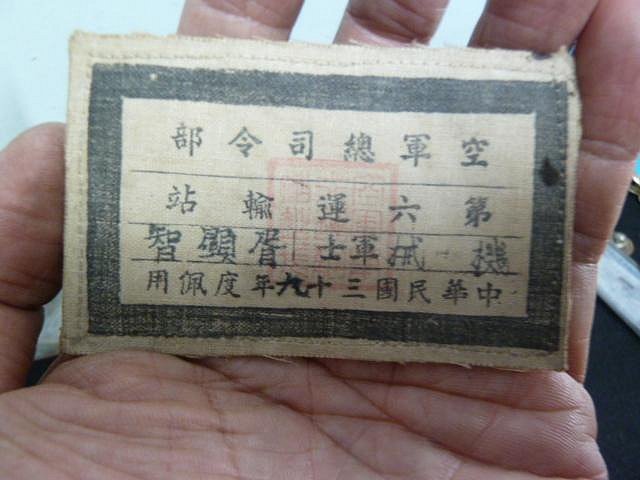 空軍總司令部
第六運輸站
機械軍士 胥顯智
中華民國三十九年度佩用